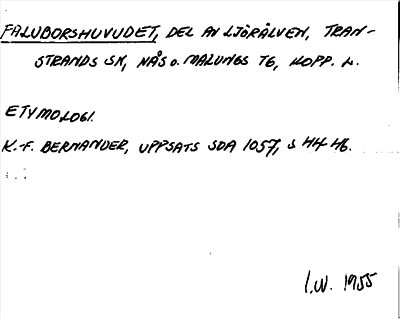 FALUBORSHUVUDET, DEL AV LJÖRÄLVEN, TRAN-
STRANDS SN, NÅS O. MALUNGS TG, KOPP. L.
ETYMOLOGI.
K.-F. BERNANDER, UPPSATS SDA 1057, S 44-46.
I.W. 1955